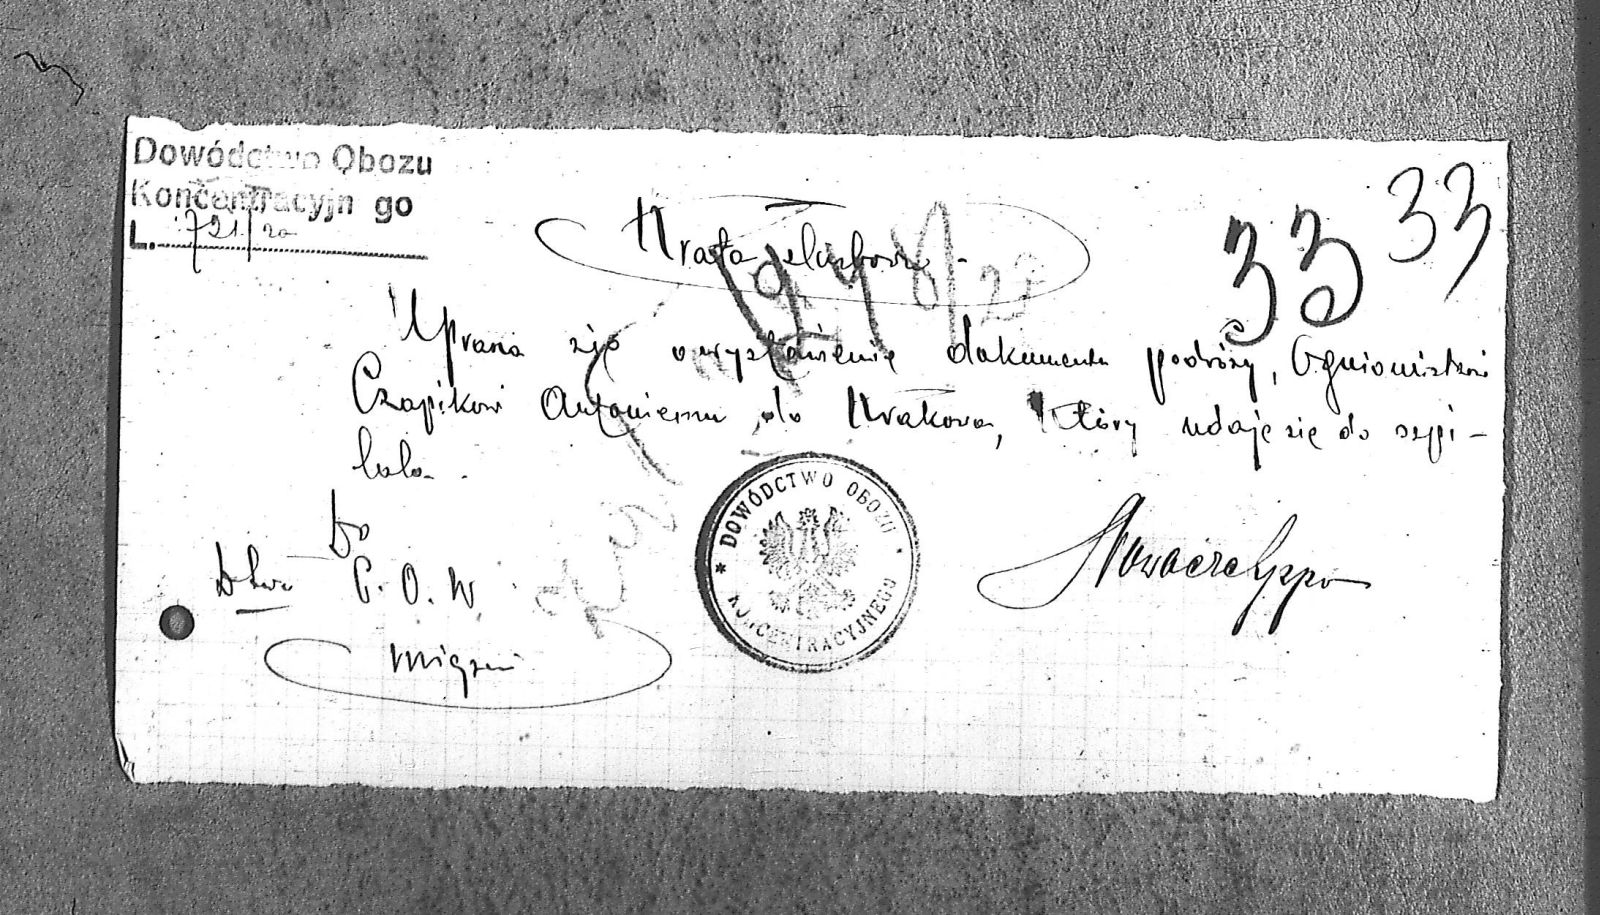 Dowództwo Obozu
Koncentracyjn go
L. 721/20
33 33
Karta służbowa.
Uprasza się o wystawienie dokumentu podróży, Ogniomistrzowi
Czapikowi Antoniemu do Krakowa, który udaje się do szpi-
tala.
Do
D-twa C. O. W.
DOWÓDZTWO OBOZU
KONCENTRACYJNEGO